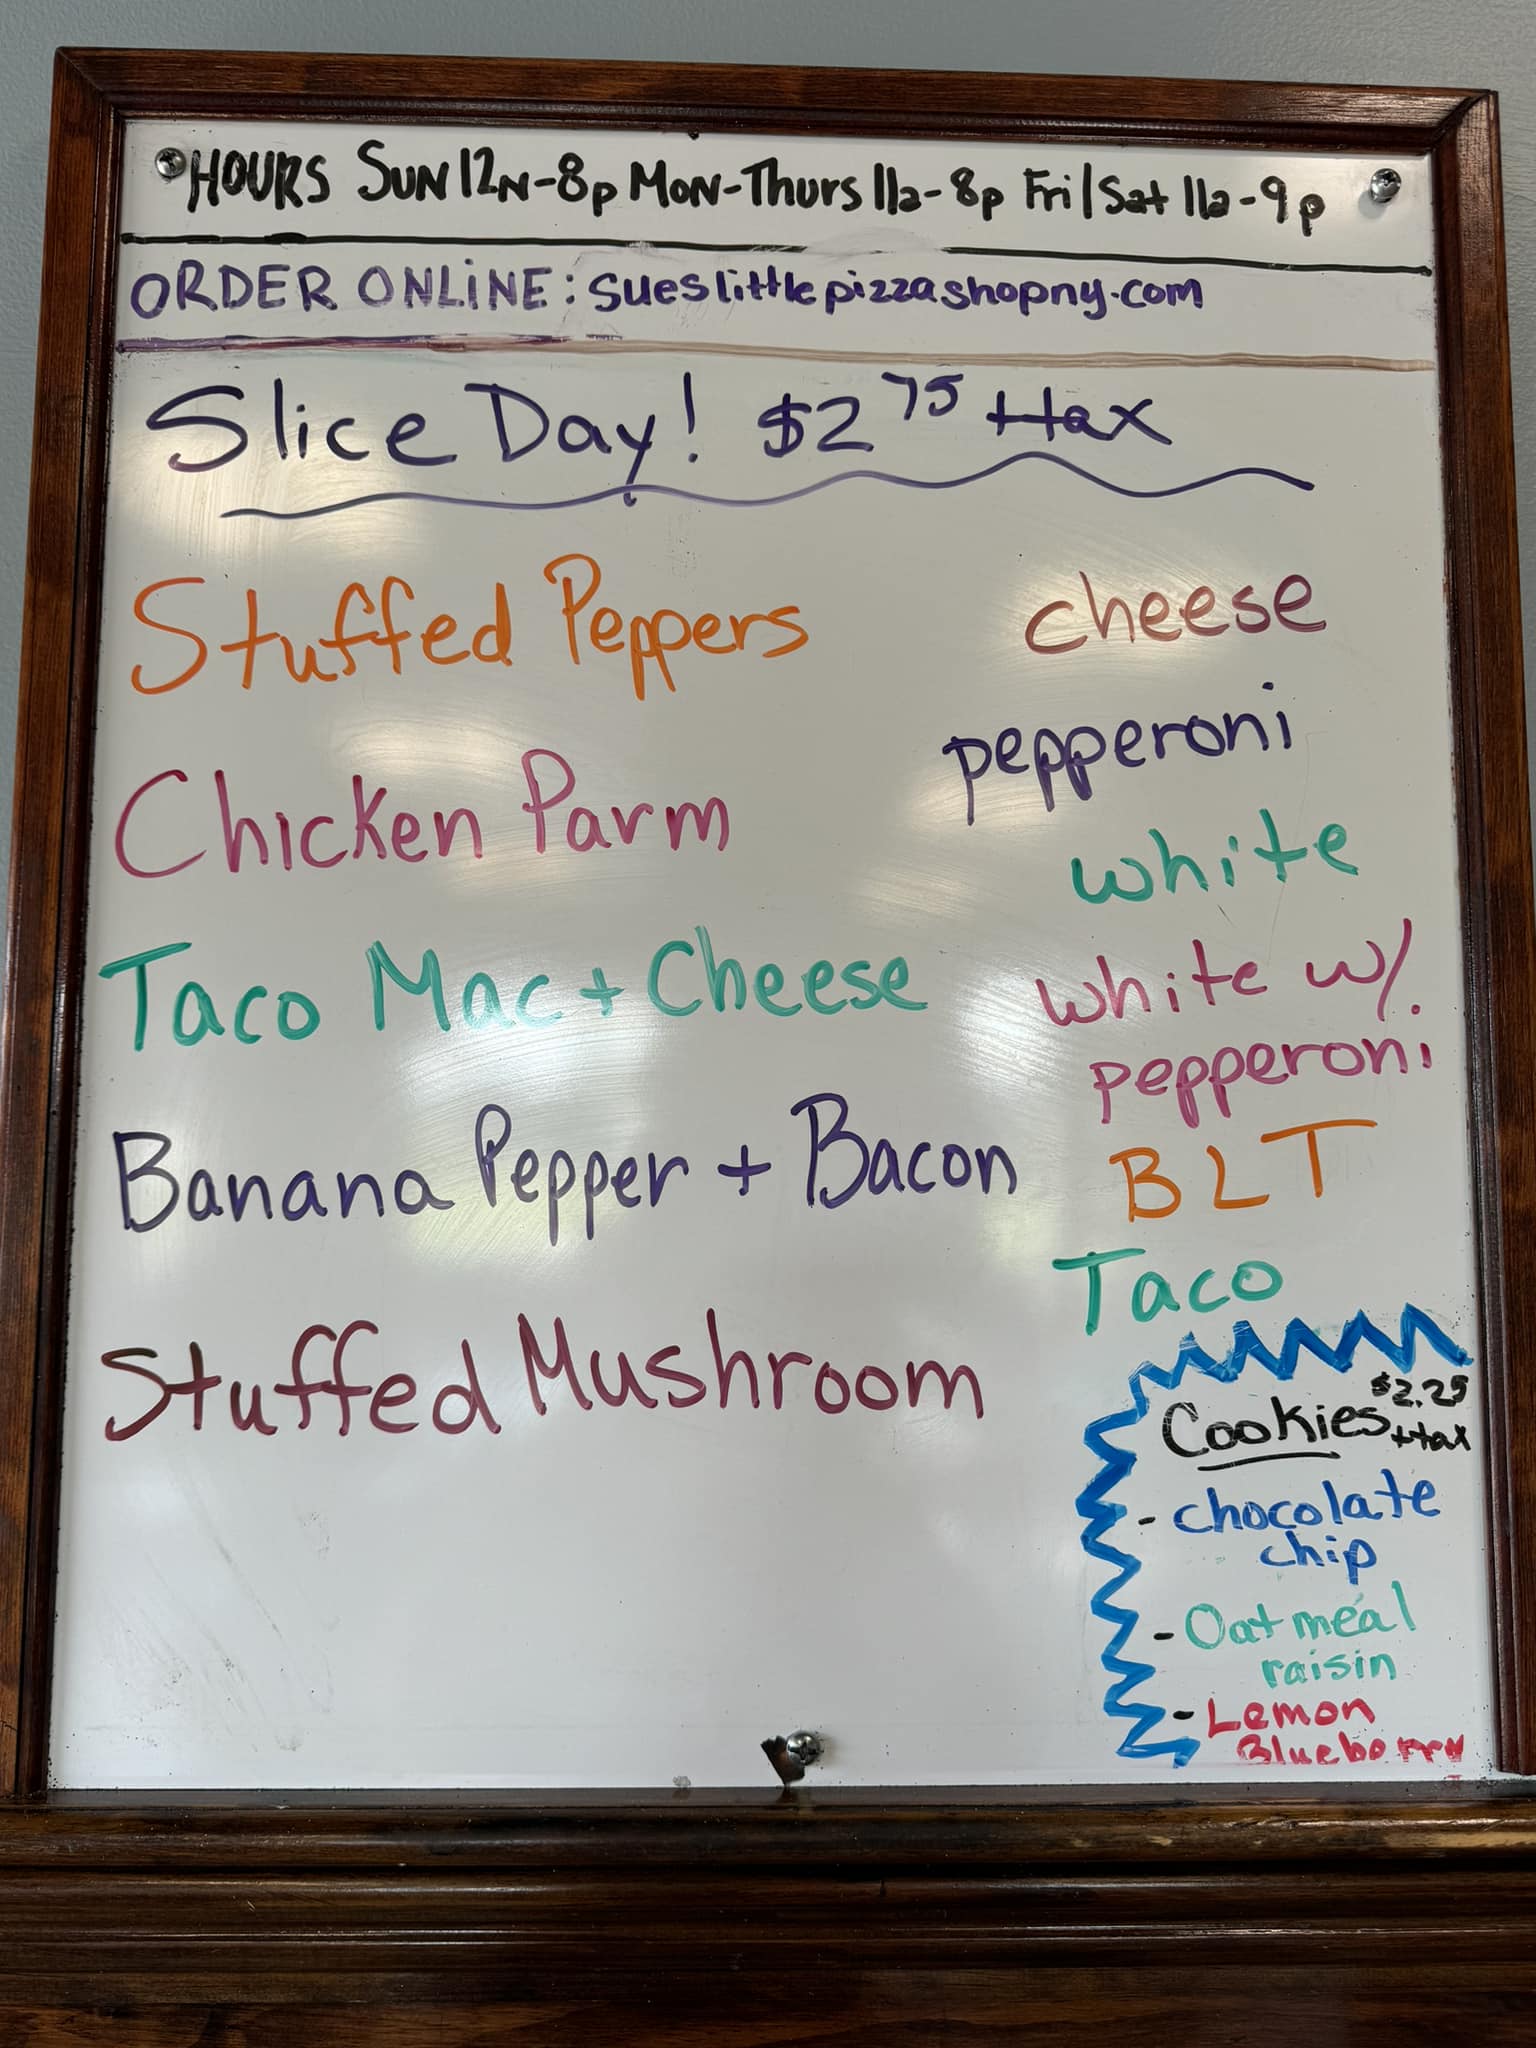 HOURS SUN 12N-8p MON-Thurs 11a-8p Fri/Sat 11a-9p
ORDER ONLINE: sueslittlepizzashopny.com
Slice Day! $2 75 + tax
Stuffed Peppers
Chicken Parm
Taco Mac + Cheese
Banana Pepper + Bacon
Stuffed Mushroom
cheese
pepperoni
white
white w/.
pepperoni
BLT
Taco
Cookies $2.25
+ tax
- chocolate
chip
- Oatmeal
raisin
- Lemon
Blueberry